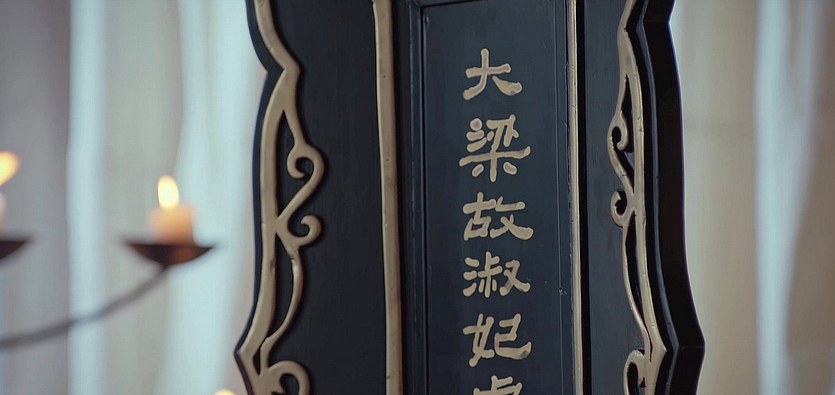 大梁故淑妃